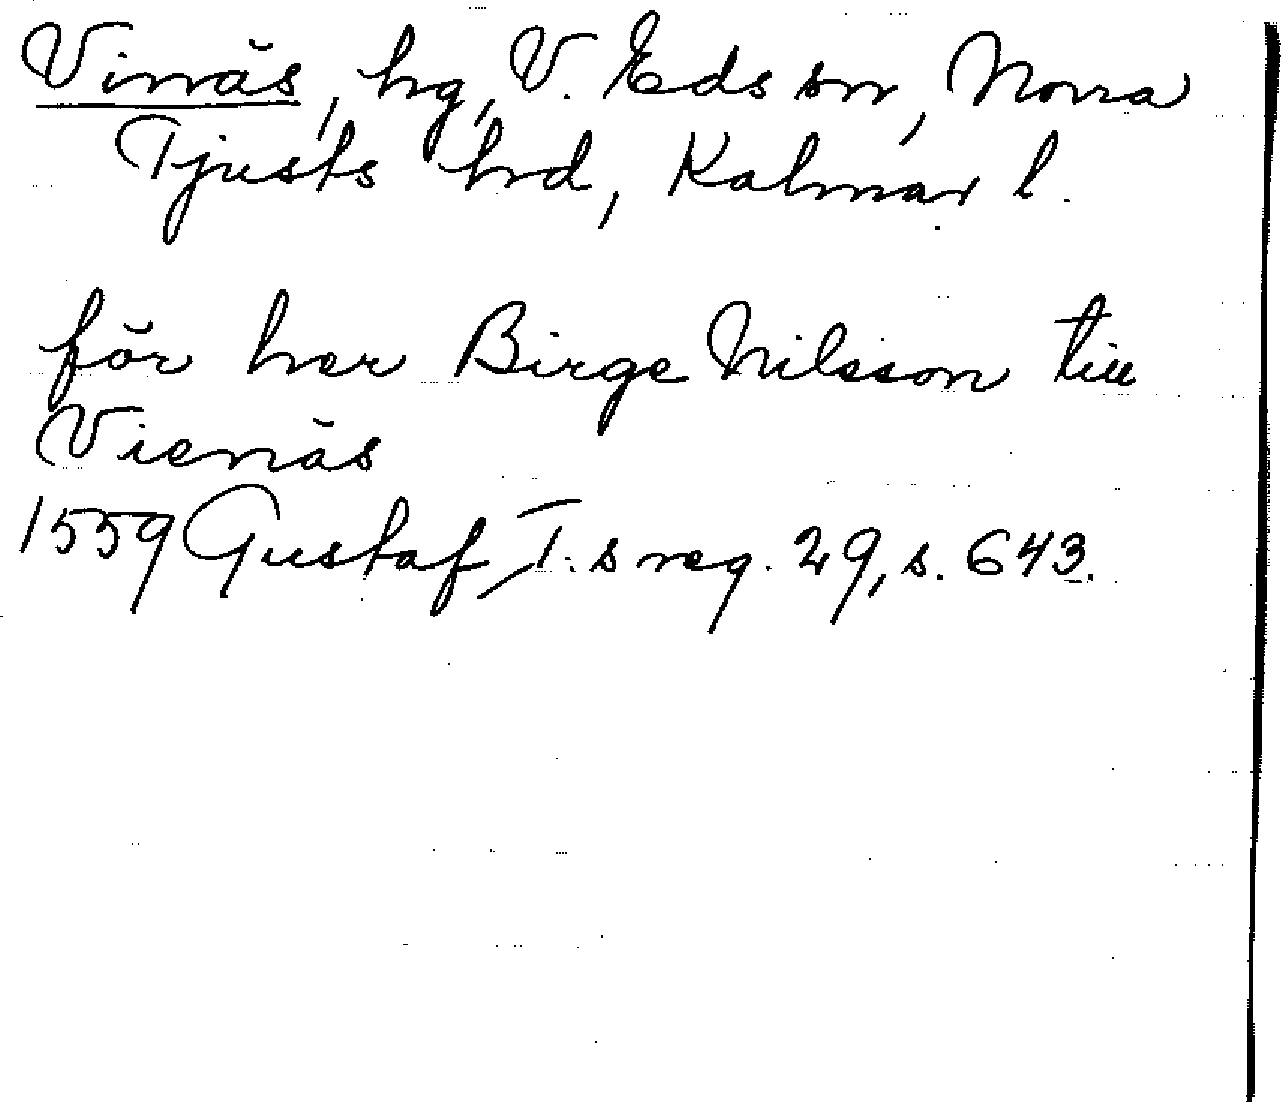 Vinäs, hg, V. Eds sn, Norra
Tjusts hrd, Kalmar l.
för her Birge Nilsson till
Vienäs
1559 Gustaf I:s reg. 29, s. 643.